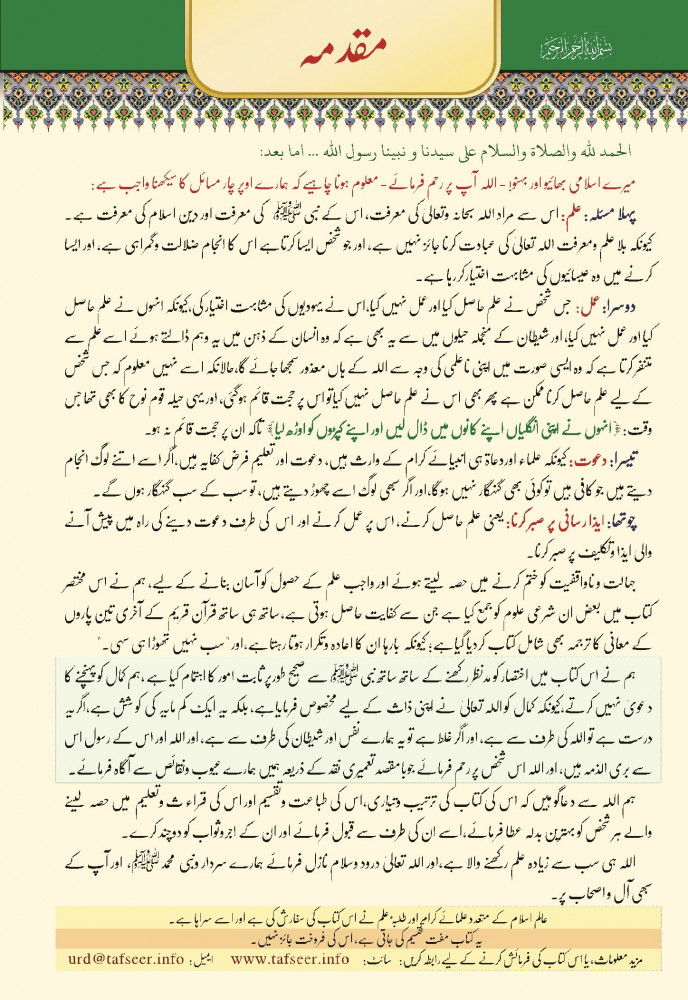 بسم الله الرحمن الرحيم
مقدمہ
الحمد لله والصلاة والسلام على سيدنا و نبينا رسول الله ... اما بعد:
میرے اسلامی بھائیو اور بہنو! - اللہ آپ پر رحم فرمائے - معلوم ہونا چاہیے کہ ہمارے اوپر چار مسائل کا سیکھنا واجب ہے:
پہلا مسئلہ: علم: اس سے مراد اللہ سبحانہ وتعالیٰ کی معرفت، اس کے نبی ﷺ کی معرفت اور دین اسلام کی معرفت ہے۔
کیونکہ بلا علم ومعرفت اللہ تعالیٰ کی عبادت کرنا جائز نہیں ہے، اور جو شخص ایسا کرتا ہے اس کا انجام ضلالت وگمراہی ہے، اور ایسا
کرنے میں وہ عیسائیوں کی مشابہت اختیار کر رہا ہے۔
دوسرا: عمل: جس شخص نے علم حاصل کیا اور عمل نہیں کیا، اس نے یہودیوں کی مشابہت اختیار کی، کیونکہ انہوں نے علم حاصل
کیا اور عمل نہیں کیا، اور شیطان کے منجملہ حیلوں میں سے یہ بھی ہے کہ وہ انسان کے ذہن میں یہ وہم ڈالتے ہوئے اسے علم سے
متنفر کرتا ہے کہ وہ ایسی صورت میں اپنی ناعلمی کی وجہ سے اللہ کے ہاں معذور سمجھا جائے گا، حالانکہ اسے نہیں معلوم کہ جس شخص
کے لیے علم حاصل کرنا ممکن ہے پھر بھی اس نے علم حاصل نہیں کیا تو اس پر حجت قائم ہوگئی، اور یہی حیلہ قوم نوح کا بھی تھا جس
وقت: ﴿انہوں نے اپنی انگلیاں اپنے کانوں میں ڈال لیں اور اپنے کپڑوں کو اوڑھ لیا﴾ تاکہ ان پر حجت قائم نہ ہو۔
تیسرا: دعوت: کیونکہ علماء اور دعاۃ ہی انبیائے کرام کے وارث ہیں، دعوت اور تعلیم فرض کفایہ ہیں، اگر اسے اتنے لوگ انجام
دیتے ہیں جو کافی ہیں تو کوئی بھی گنہگار نہیں ہوگا، اور اگر سبھی لوگ اسے چھوڑ دیتے ہیں، تو سب کے سب گنہگار ہوں گے۔
چوتھا: ایذا رسانی پر صبر کرنا: یعنی علم حاصل کرنے، اس پر عمل کرنے اور اس کی طرف دعوت دینے کی راہ میں پیش آنے
والی ایذا وتکلیف پر صبر کرنا۔
جہالت و ناواقفیت کو ختم کرنے میں حصہ لیتے ہوئے اور واجب علم کے حصول کو آسان بنانے کے لیے، ہم نے اس مختصر
کتاب میں بعض ان شرعی علوم کو جمع کیا ہے جن سے کفایت حاصل ہوتی ہے، ساتھ ہی ساتھ قرآن کریم کے آخری تین پاروں
کے معانی کا ترجمہ بھی شامل کتاب کر دیا گیا ہے؛ کیونکہ بارہا ان کا اعادہ وتکرار ہوتا رہتا ہے، اور "سب نہیں تھوڑا ہی سہی۔"
ہم نے اس کتاب میں اختصار کو مد نظر رکھنے کے ساتھ ساتھ نبی ﷺ سے صحیح طور پر ثابت امور کا اہتمام کیا ہے، ہم کمال کو پہنچنے کا
دعویٰ نہیں کرتے، کیونکہ کمال کو اللہ تعالیٰ نے اپنی ذات کے لیے مخصوص فرمایا ہے، بلکہ یہ ایک کم مایہ کی کوشش ہے، اگر یہ
درست ہے تو اللہ کی طرف سے ہے، اور اگر غلط ہے تو یہ ہمارے نفس اور شیطان کی طرف سے ہے، اور اللہ اور اس کے رسول اس
سے بری الذمہ ہیں، اور اللہ اس شخص پر رحم فرمائے جو بامقصد تعمیری نقد کے ذریعہ ہمیں ہمارے عیوب ونقائص سے آگاہ فرمائے۔
ہم اللہ سے دعاگو ہیں کہ اس کی کتاب کی ترتیب وتیاری، اس کی طباعت وتقسیم اور اس کی قراءت وتعلیم میں حصہ لینے
والے ہر شخص کو بہترین بدلہ عطا فرمائے، اسے ان کی طرف سے قبول فرمائے اور ان کے اجر وثواب کو دوچند کرے۔
اللہ ہی سب سے زیادہ علم رکھنے والا ہے، اور اللہ تعالیٰ درود وسلام نازل فرمائے ہمارے سردار ونبی محمد ﷺ، اور آپ کے
سبھی آل و اصحاب پر۔
عالم اسلام کے متعدد علمائے کرام اور طلبۂ علم نے اس کتاب کی سفارش کی ہے اور اسے سراہا ہے۔
یہ کتاب مفت تقسیم کی جاتی ہے، اس کی فروخت جائز نہیں۔
مزید معلومات، یا اس کتاب کی فرمائش کرنے کے لیے رابطہ کریں: سائٹ: www.tafseer.info ایمیل: urd@tafseer.info